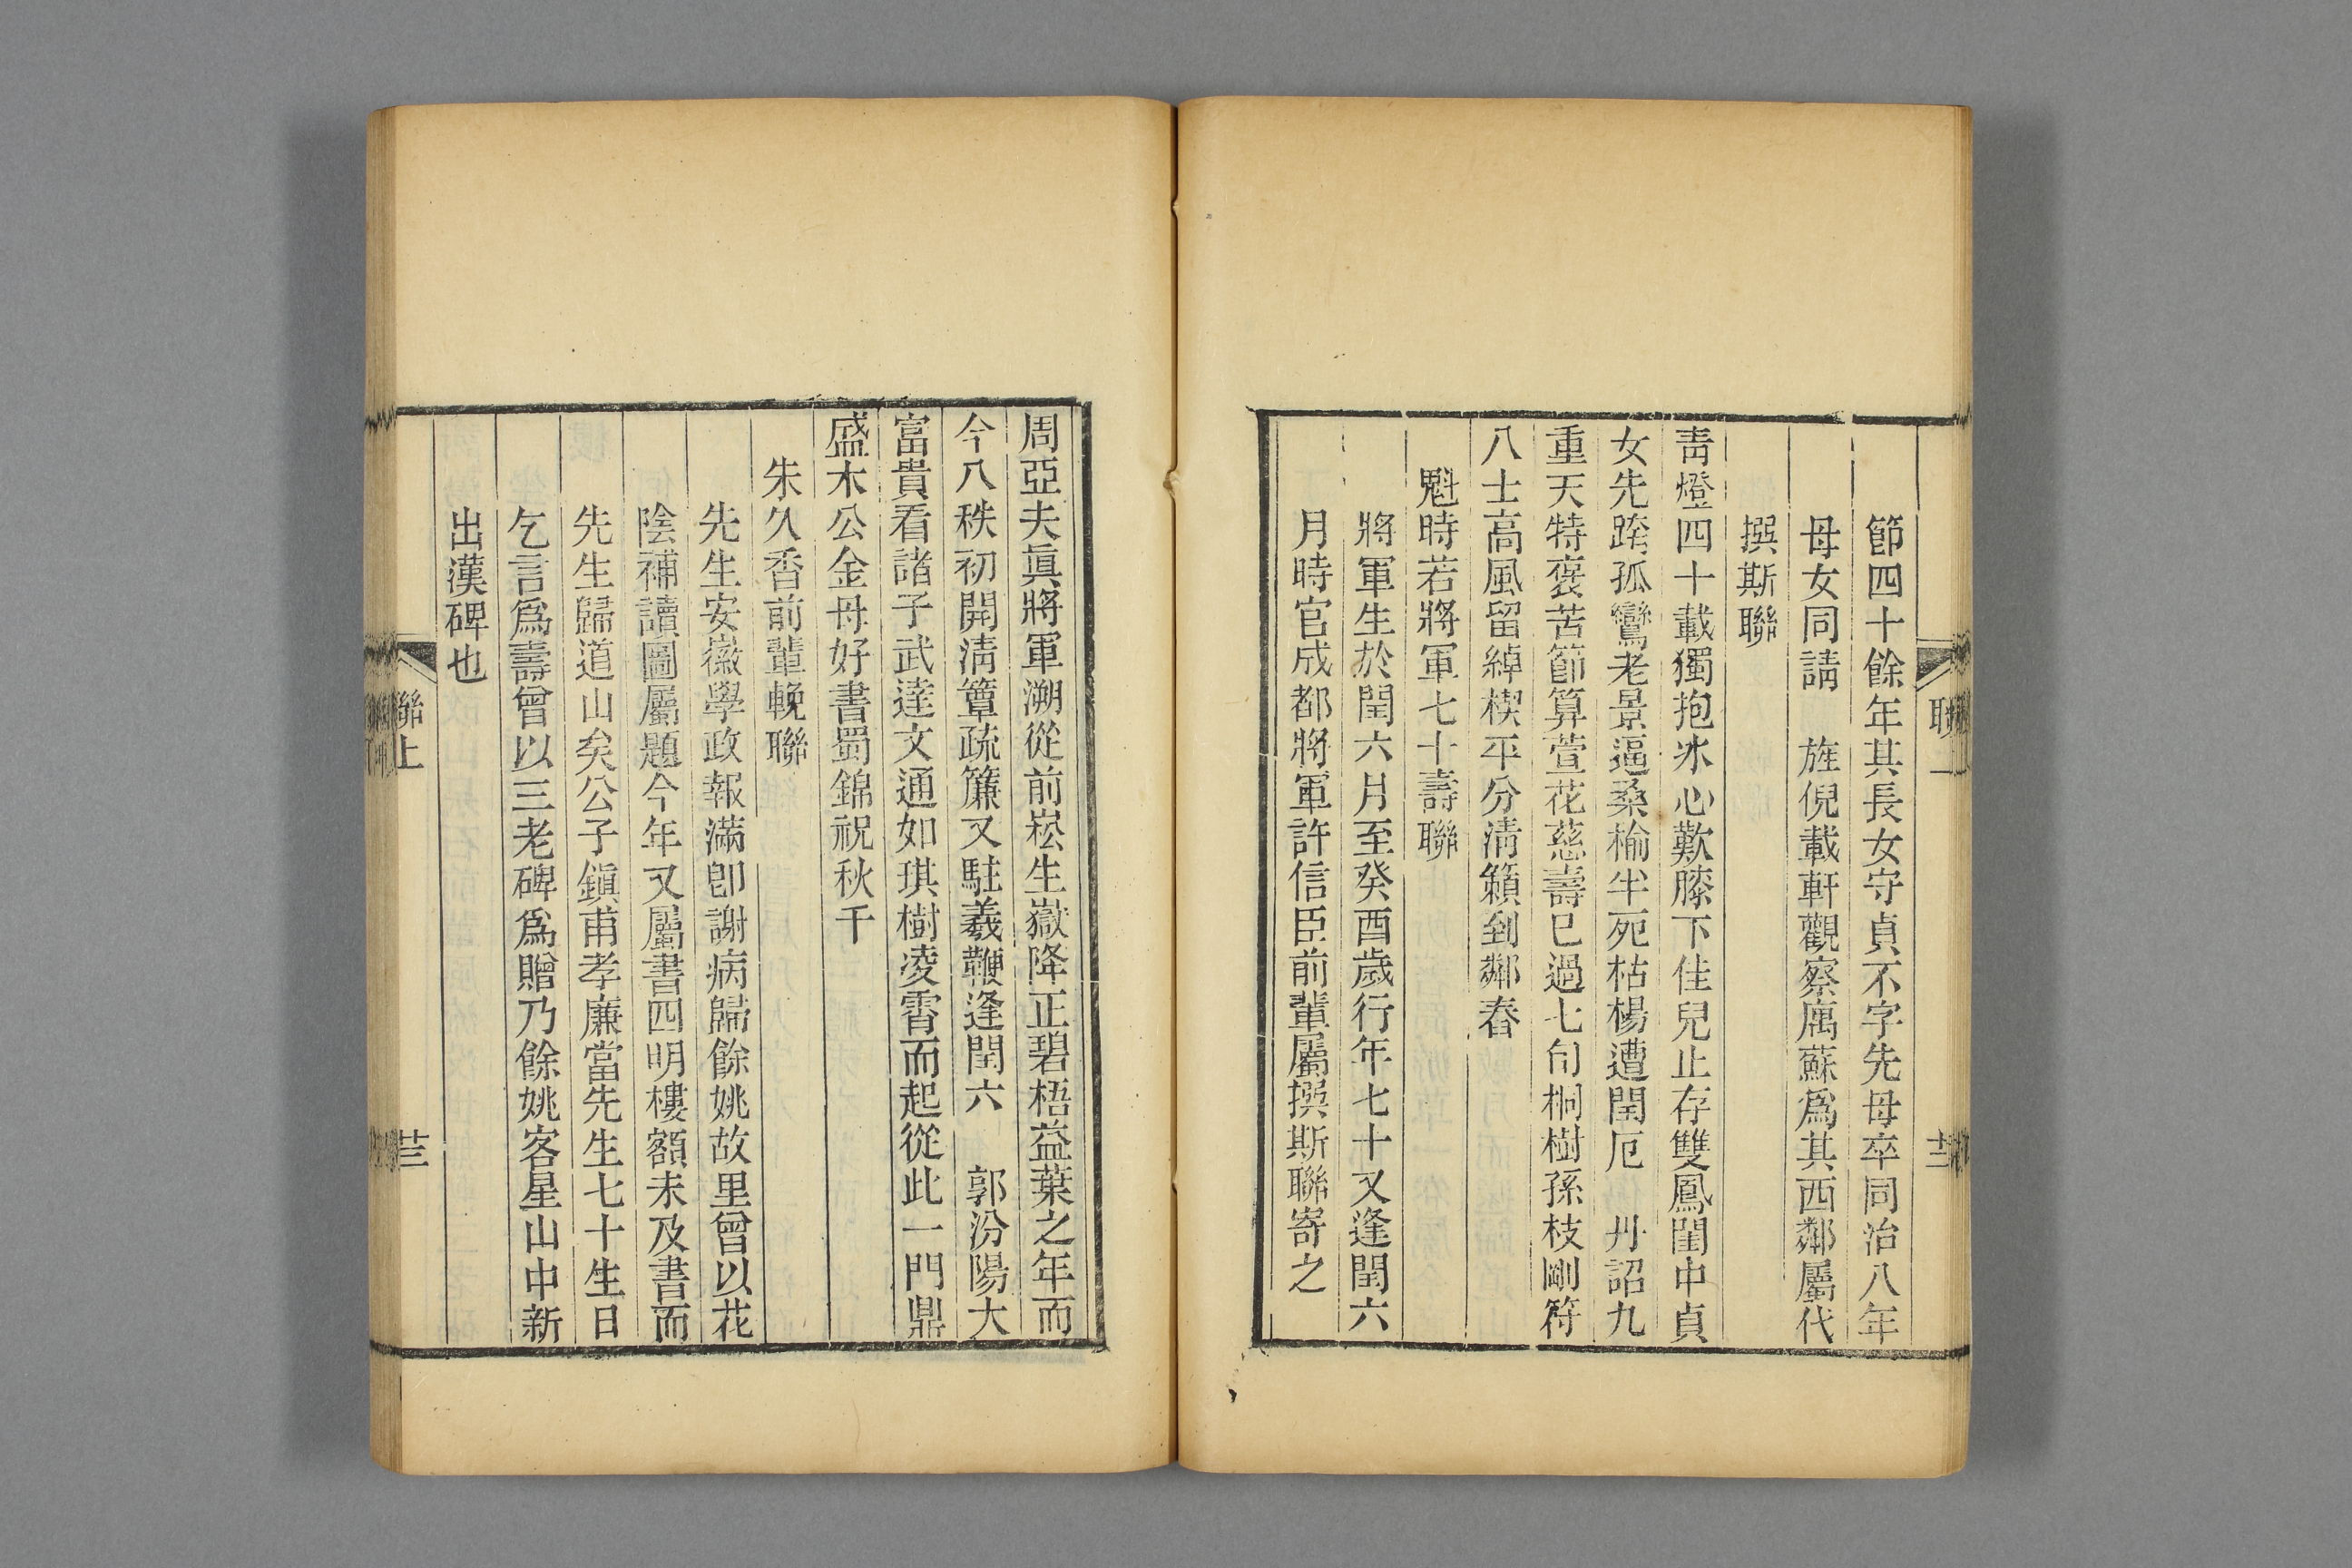 節四十餘年其長女守貞不字先母卒同治八年
母女同請　旌倪載軒觀察厲蘇爲其西鄰屬代
撰斯聯
靑燈四十載獨抱冰心歎膝下佳兒止存雙鳳閨中貞
女先跨孤鸞老景逼桑榆半死枯楊遭閏厄　丹詔九
重天特褒苦節算萱花慈壽已過七旬桐樹孫枝剛符
八士高風留綽楔平分清籟到鄰春
魁時若將軍七十壽聯
將軍生於閏六月至癸酉歲行年七十又逢閏六
月時官成都將軍許信臣前輩屬撰斯聯寄之
周亞夫眞將軍溯從前崧生嶽降正碧梧益葉之年而
今八秩初開清簟疏簾又駐羲鞭逢閏六　郭汾陽大
富貴看諸子武達文通如琪樹凌霄而起從此一門鼎
盛木公金母好書蜀錦祝秋千
朱久香前輩輓聯
先生安徽學政報滿卽謝病歸餘姚故里曾以花
陰補讀圖屬題今年又屬書四明樓額未及書而
先生歸道山矣公子鎭甫孝廉當先生七十生日
乞言爲壽曾以三老碑爲贈乃餘姚客星山中新
出漢碑也
聯上